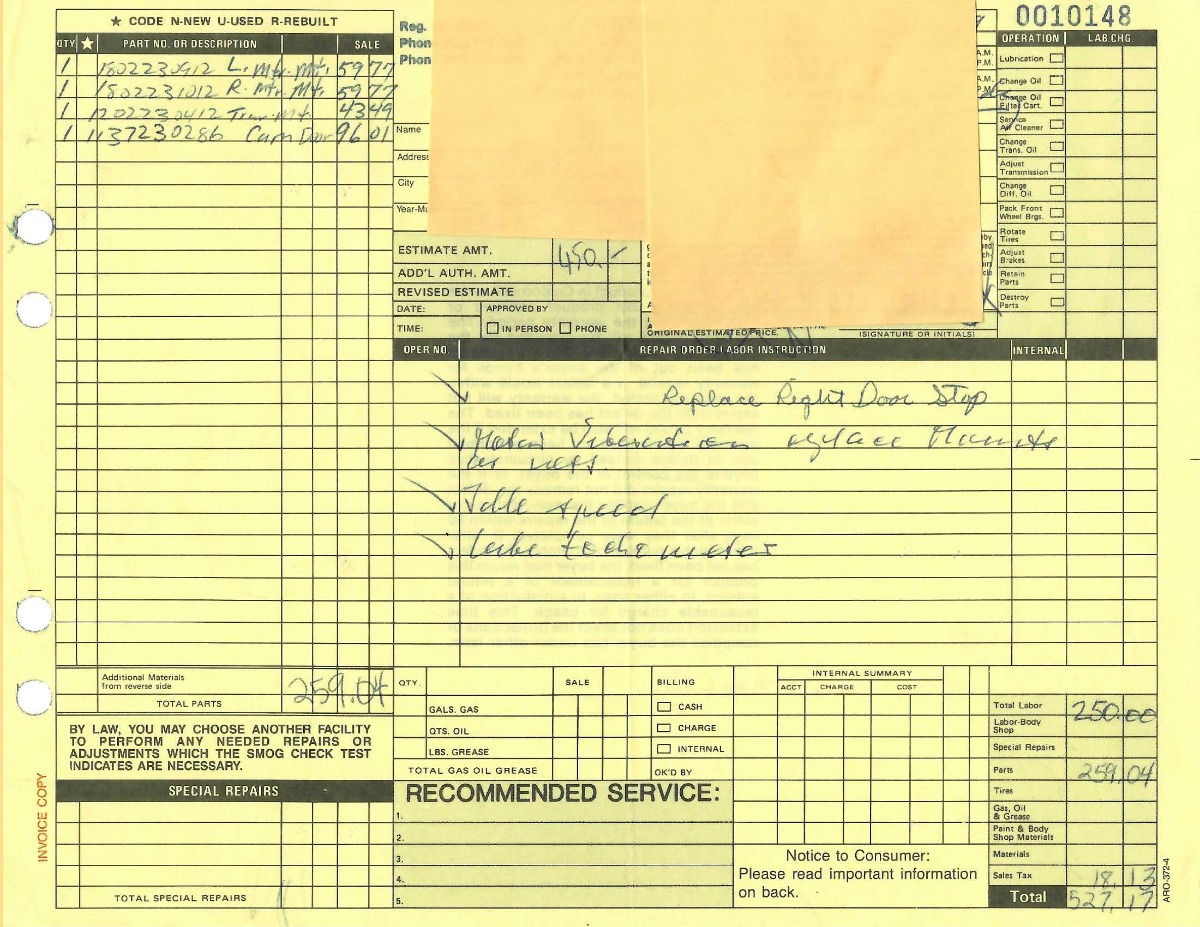 ★ CODE N-NEW U-USED R-REBUILT
QTY ★ PART NO. OR DESCRIPTION SALE
1 1802230912 L. Mtr. Mt. 59 77
1 1802231012 R. Mtr. Mt. 59 77
1 1202230412 Tran. Mt 43 49
1 1137230286 Door 96 01
Additional Materials
from reverse side
TOTAL PARTS 259.04
BY LAW, YOU MAY CHOOSE ANOTHER FACILITY
TO PERFORM ANY NEEDED REPAIRS OR
ADJUSTMENTS WHICH THE SMOG CHECK TEST
INDICATES ARE NECESSARY.
SPECIAL REPAIRS
TOTAL SPECIAL REPAIRS
INVOICE COPY
Reg.
Phon
Phon
Name
Address
City
Year-Ma
ESTIMATE AMT. 450.-
ADD'L AUTH. AMT.
REVISED ESTIMATE
DATE: APPROVED BY
TIME: IN PERSON PHONE
ORIGINAL ESTIMATED PRICE.
(SIGNATURE OR INITIALS)
0010148
OPERATION LAB.CHG.
A.M.
P.M.
A.M.
P.M.
Lubrication
Change Oil
Change Oil
Filter Cart.
Service
Air Cleaner
Change
Trans. Oil
Adjust
Transmission
Change
Diff. Oil
Pack Front
Wheel Brgs.
Rotate
Tires
Adjust
Brakes
Retain
Parts
Destroy
Parts
OPER NO. REPAIR ORDER-LABOR INSTRUCTION INTERNAL
Replace Right Door Stop
Motor Viberation replace Mounts
as ness.
Idle speed
Lube tachometer
QTY. SALE
GALS. GAS
QTS. OIL
LBS. GREASE
TOTAL GAS OIL GREASE
BILLING
CASH
CHARGE
INTERNAL
OK'D BY
INTERNAL SUMMARY
ACCT CHARGE COST
RECOMMENDED SERVICE:
1.
2.
3.
4.
5.
Notice to Consumer:
Please read important information
on back.
Total Labor 250.00
Labor-Body
Shop
Special Repairs
Parts 259.04
Tires
Gas, Oil
& Grease
Paint & Body
Shop Materials
Materials
Sales Tax 18.13
Total 527.17
ARO-372-4